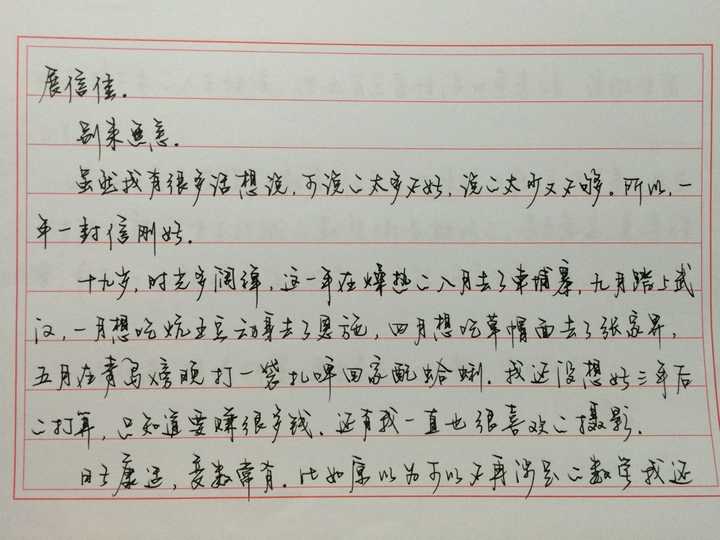 展信佳.
别来无恙.
虽然我有很多话想说,可说的太多不好,说的太少又不够.所以,一
年一封信刚好.
十九岁,时光多阔绰,这一年在燥热的八月去了柬埔寨,九月踏上武
汉,一月想吃炕土豆动身去了恩施,四月想吃草帽面去了张家界,
五月在青岛傍晚打一袋扎啤回家配蛤蜊.我还没想好三年后
的打算,只知道要赚很多钱.还有我一直也很喜欢的摄影.
日子康迅,变数常有.比如原以为可以不再涉足的数学我还